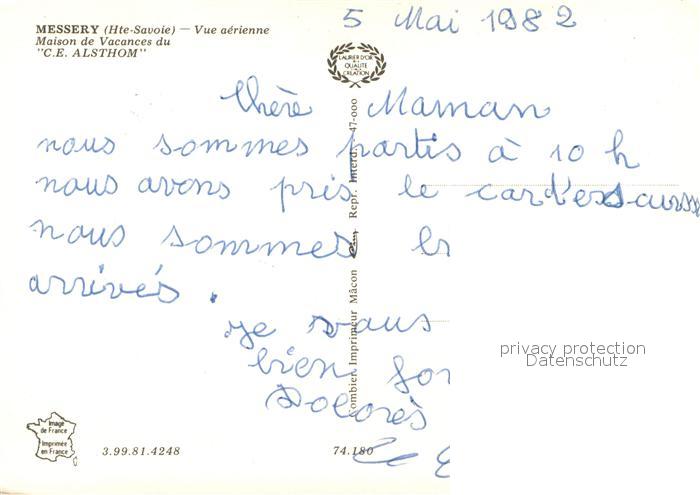 MESSERY (Hte-Savoie) — Vue aérienne
Maison de Vacances du
"C.E. ALSTHOM"
5 Mai 1982
LAURIER D'OR
DE LA
QUALITÉ
CRÉATION
Chère Maman
nous sommes partis à 10 h
nous avons pris le car
nous sommes
arrivés.
je vous
bien
Dolorès
Combier Imprimeur Mâcon
Repr. Interd. 47-000
privacy protection
Datenschutz
Image
de France
Imprimée
en France
3.99.81.4248
74.180